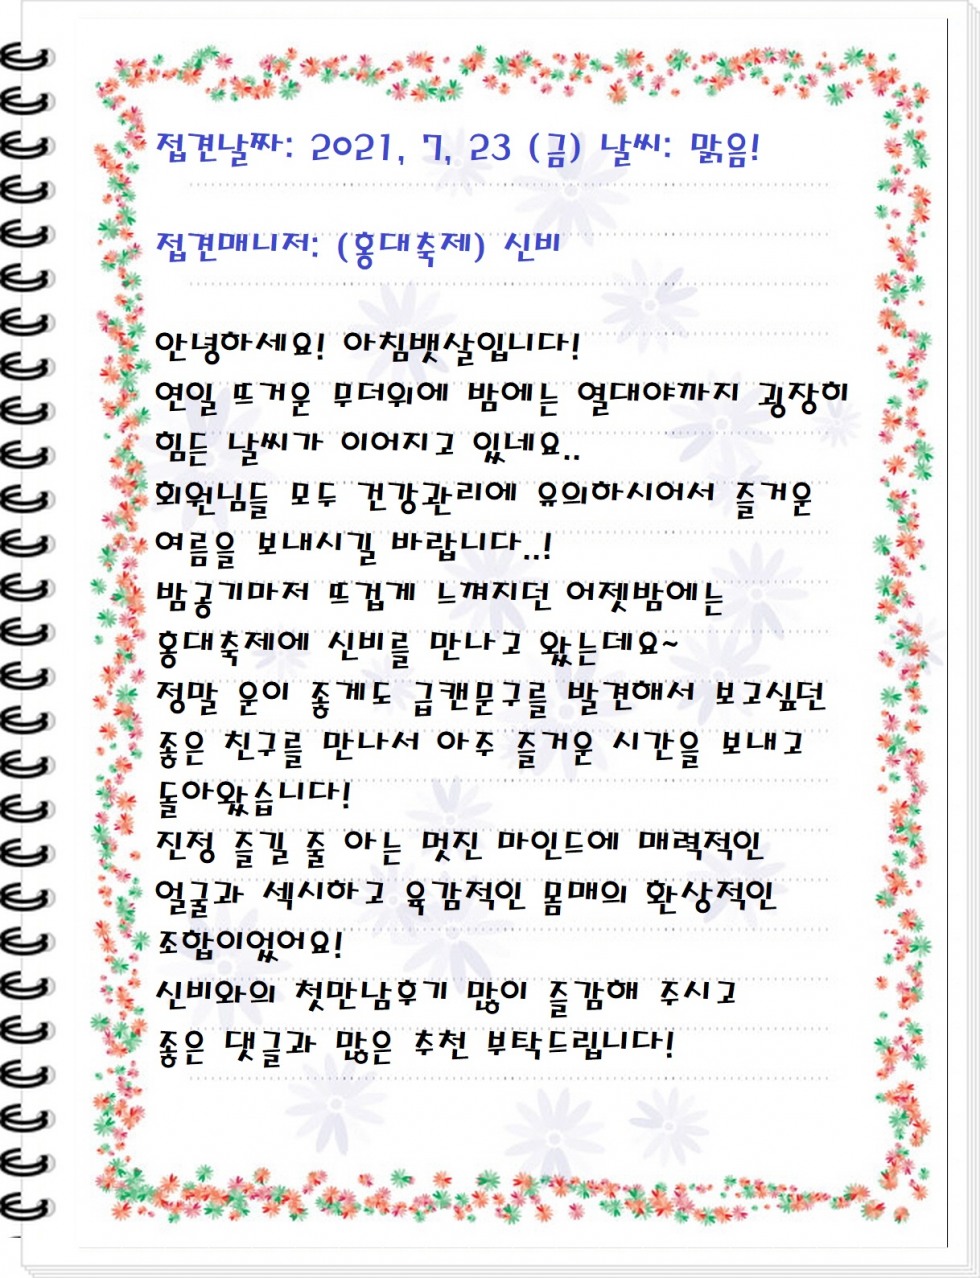 접견날짜: 2021, 7, 23 (금) 날씨: 맑음!
접견매니저: (홍대축제) 신비
안녕하세요! 아침뱃살입니다!
연일 뜨거운 무더위에 밤에는 열대야까지 굉장히
힘든 날씨가 이어지고 있네요..
회원님들 모두 건강관리에 유의하시어서 즐거운
여름을 보내시길 바랍니다..!
밤공기마저 뜨겁게 느껴지던 어젯밤에는
홍대축제에 신비를 만나고 왔는데요~
정말 운이 좋게도 급캔문구를 발견해서 보고싶던
좋은 친구를 만나서 아주 즐거운 시간을 보내고
돌아왔습니다!
진정 즐길 줄 아는 멋진 마인드에 매력적인
얼굴과 섹시하고 육감적인 몸매의 환상적인
조합이었어요!
신비와의 첫만남후기 많이 즐감해 주시고
좋은 댓글과 많은 추천 부탁드립니다!